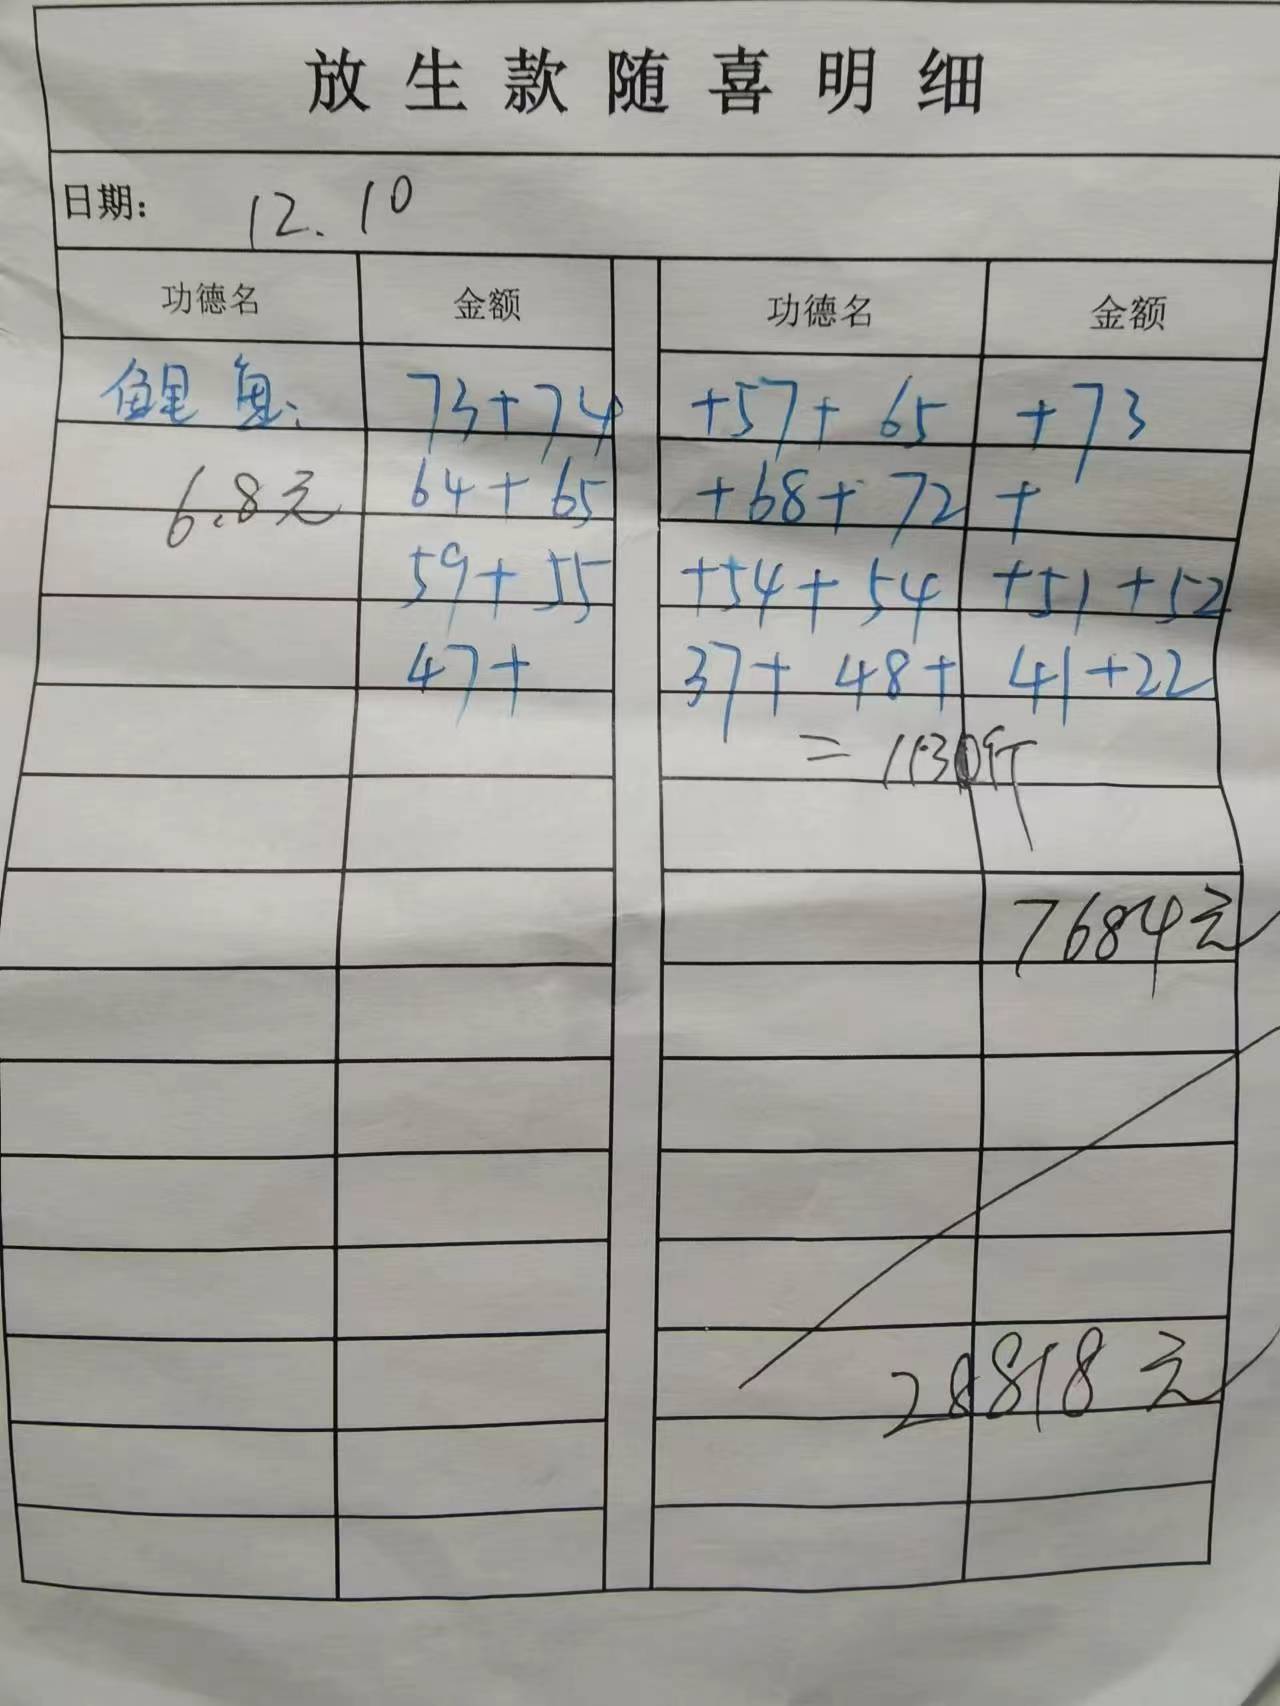 放生款随喜明细
日期: 12.10
功德名 金额 功德名 金额
鲤鱼: 73+74 +57+65 +73
6.8元 64+65 +68+72 +
59+55 +54+54 +51+52
47+ 37+ 48+ 41+22
=1130斤
7684元
28818元